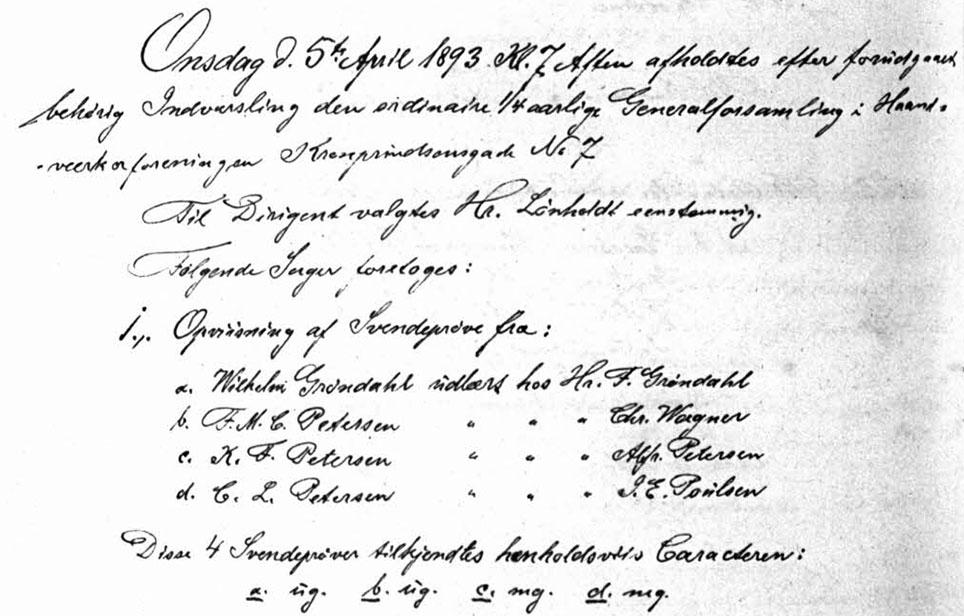 Onsdag d. 5te April 1893 Kl. 7 Aften afholdtes efter forudgaaet
behørig Indvarsling den ordinaire 1/4 aarlige Generalforsamling i Haand-
-veerkerforeningen Kronprindsensgade No 7
Til Dirigent valgtes Hr. Lönholdt eenstemmig.
Følgende Sager foretoges:
1., Opviisning af Svendeprøve fra:
a. Wilhelm Grøndahl udlært hos Hr. F. Grøndahl
b. F. M. C. Petersen " " " Chr. Wagner
c. K. F. Petersen " " " Alfr. Petersen
d. C. L. Petersen " " " I. E. Poulsen
Disse 4 Svendeprøver tilkjendtes henholdsviis Caracteren:
a. ug. b. ug. c. mg. d. mg.